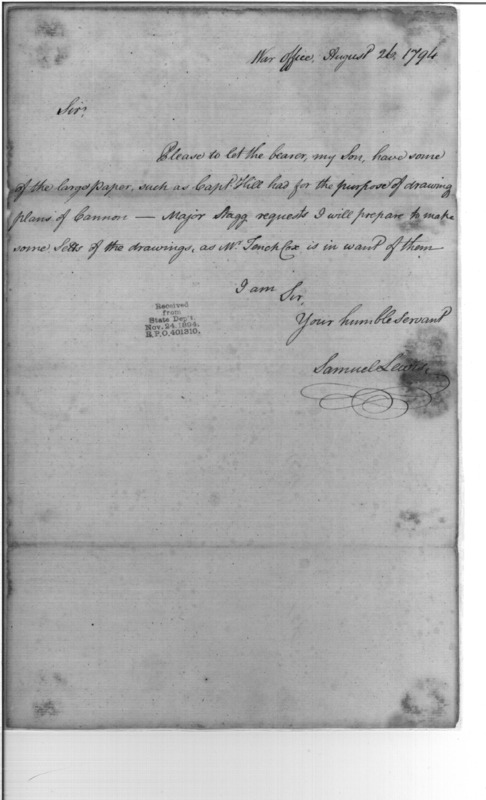 War office, August 26, 1794
Sir,
Please to let the bearer, my Son, have some
of the large paper, such as Capt. Hill had for the purpose of drawing
plans of Cannon — Major Stagg requests I will prepare to make
some Setts of the drawings, as Mr. Tench Cox is in want of them
I am Sir,
Your humble servant
Samuel Lewis.
Received
from
State Dep't.
Nov. 24. 1894.
R.P.O. 401310.